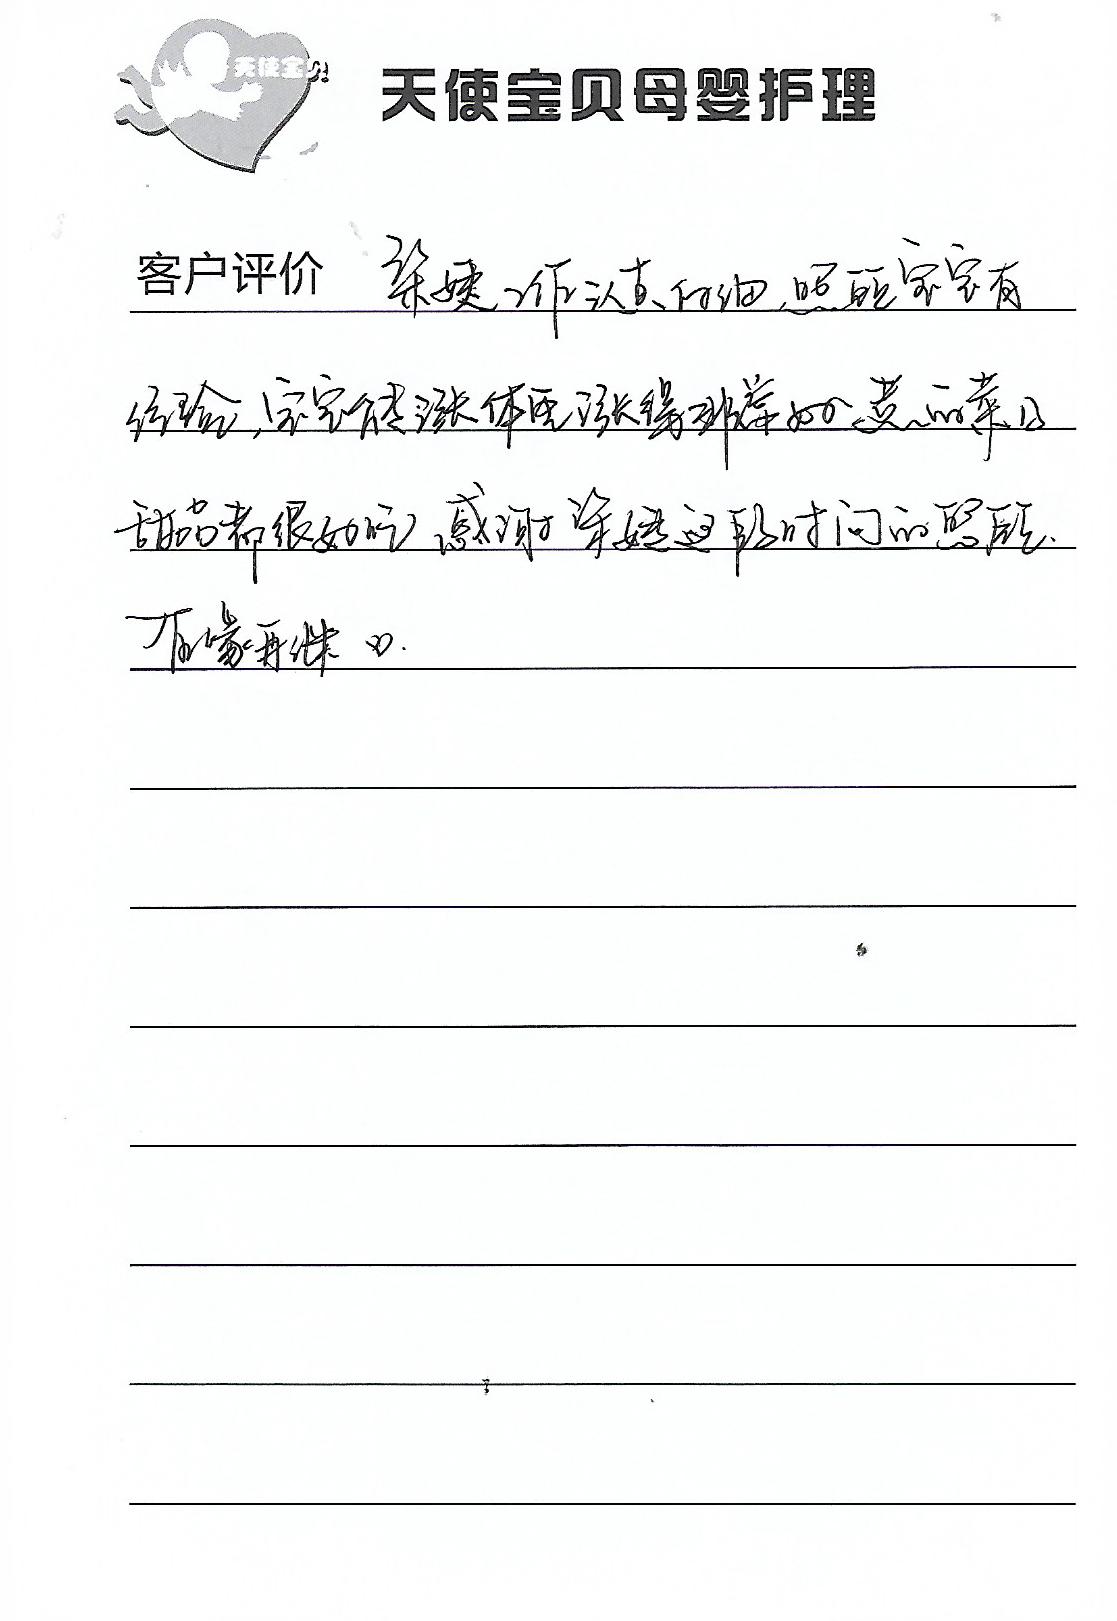 天使宝贝
天使宝贝母婴护理
客户评价 梁姨工作认真仔细,照顾宝宝有
经验,宝宝能涨体重涨得非常好。煮的菜及
甜品都很好吃,感谢梁姨这段时间的照顾.
有缘再继